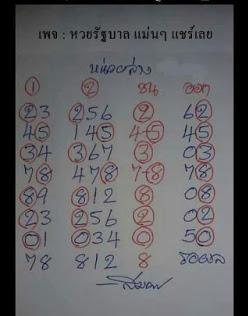 เพจ : หวยรัฐบาล แม่นๆ แชร์เลย
หน่วยล่าง
1 2 ชน ออก
23 256 2 62
45 145 4-5 45
34 367 3 03
78 478 7-8 78
89 812 8 08
23 256 2 02
01 034 0 50
78 812 8 รอผล